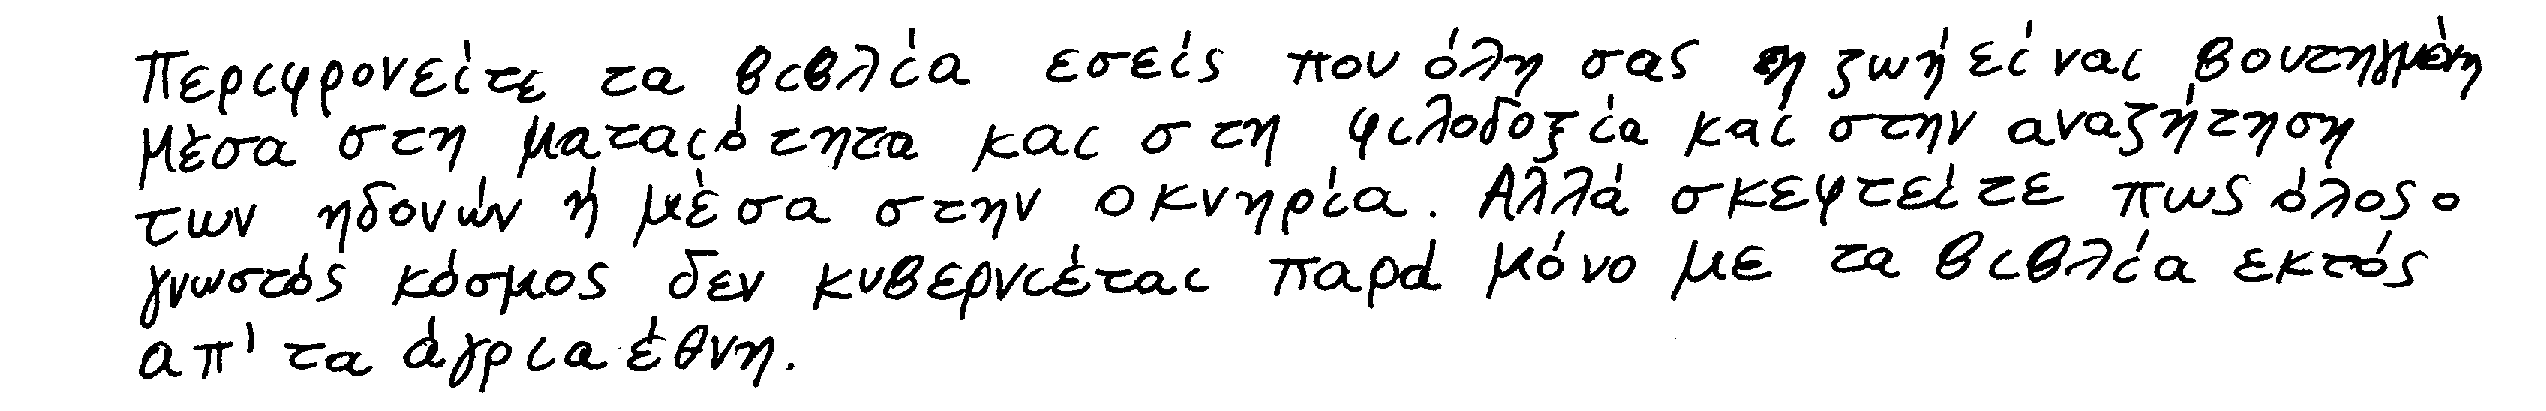 Περιφρονείτε τα βιβλία εσείς που όλη σας η ζωή είναι βουτηγμένη
μέσα στη ματαιότητα και στη φιλοδοξία καί στην αναζήτηση
των ηδονών ή μέσα στην οκνηρία. Αλλά σκεφτείτε πως όλος ο
γνωστός κόσμος δεν κυβερνιέται παρά μόνο με τα βιβλία εκτός
απ' τα άγρια έθνη.